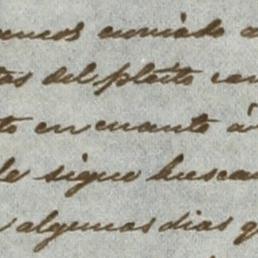 enviado a
del pleito
to en cuanto á
le sigue buscan
algunos dias q